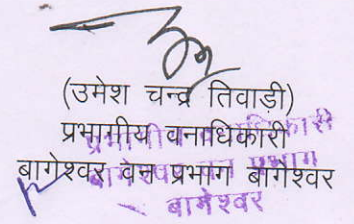 (उमेश चन्द्र तिवाड़ी)
प्रभागीय वनाधिकारी
बागेश्वर वन प्रभाग बागेश्वर
प्रभागीय वनाधिकारी
बागेश्वर वन प्रभाग
बागेश्वर